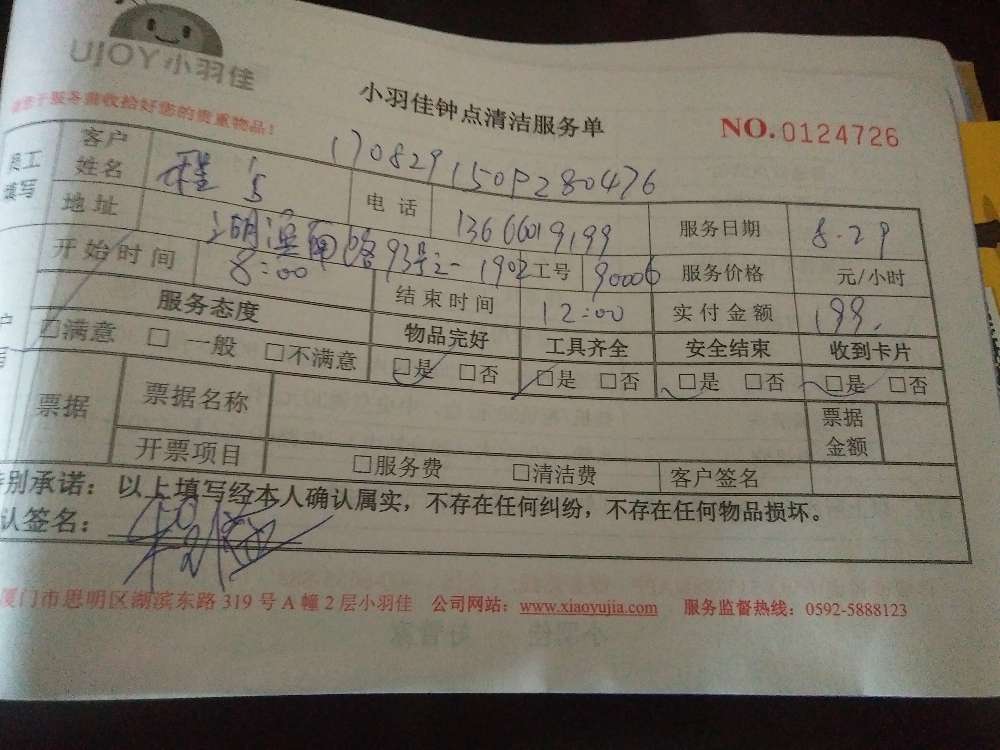 UJOY小羽佳
小羽佳钟点清洁服务单
NO.0124726
请您于服务前收拾好您的贵重物品！
170829150P280476
员工填写
客户姓名 程
电话 13666019199
服务日期 8.29
地址 湖滨南路93号之一1902
工号 90006
服务价格 元/小时
开始时间 8:00
结束时间 12:00
实付金额 199.
服务态度 物品完好 工具齐全 安全结束 收到卡片
□满意 □一般 □不满意 □是 □否 □是 □否 □是 □否 □是 □否
票据 票据名称 票据金额
开票项目 □服务费 □清洁费 客户签名
特别承诺：以上填写经本人确认属实，不存在任何纠纷，不存在任何物品损坏。
认签名：
厦门市思明区湖滨东路319号A幢2层小羽佳 公司网站：www.xiaoyujia.com 服务监督热线：0592-5888123